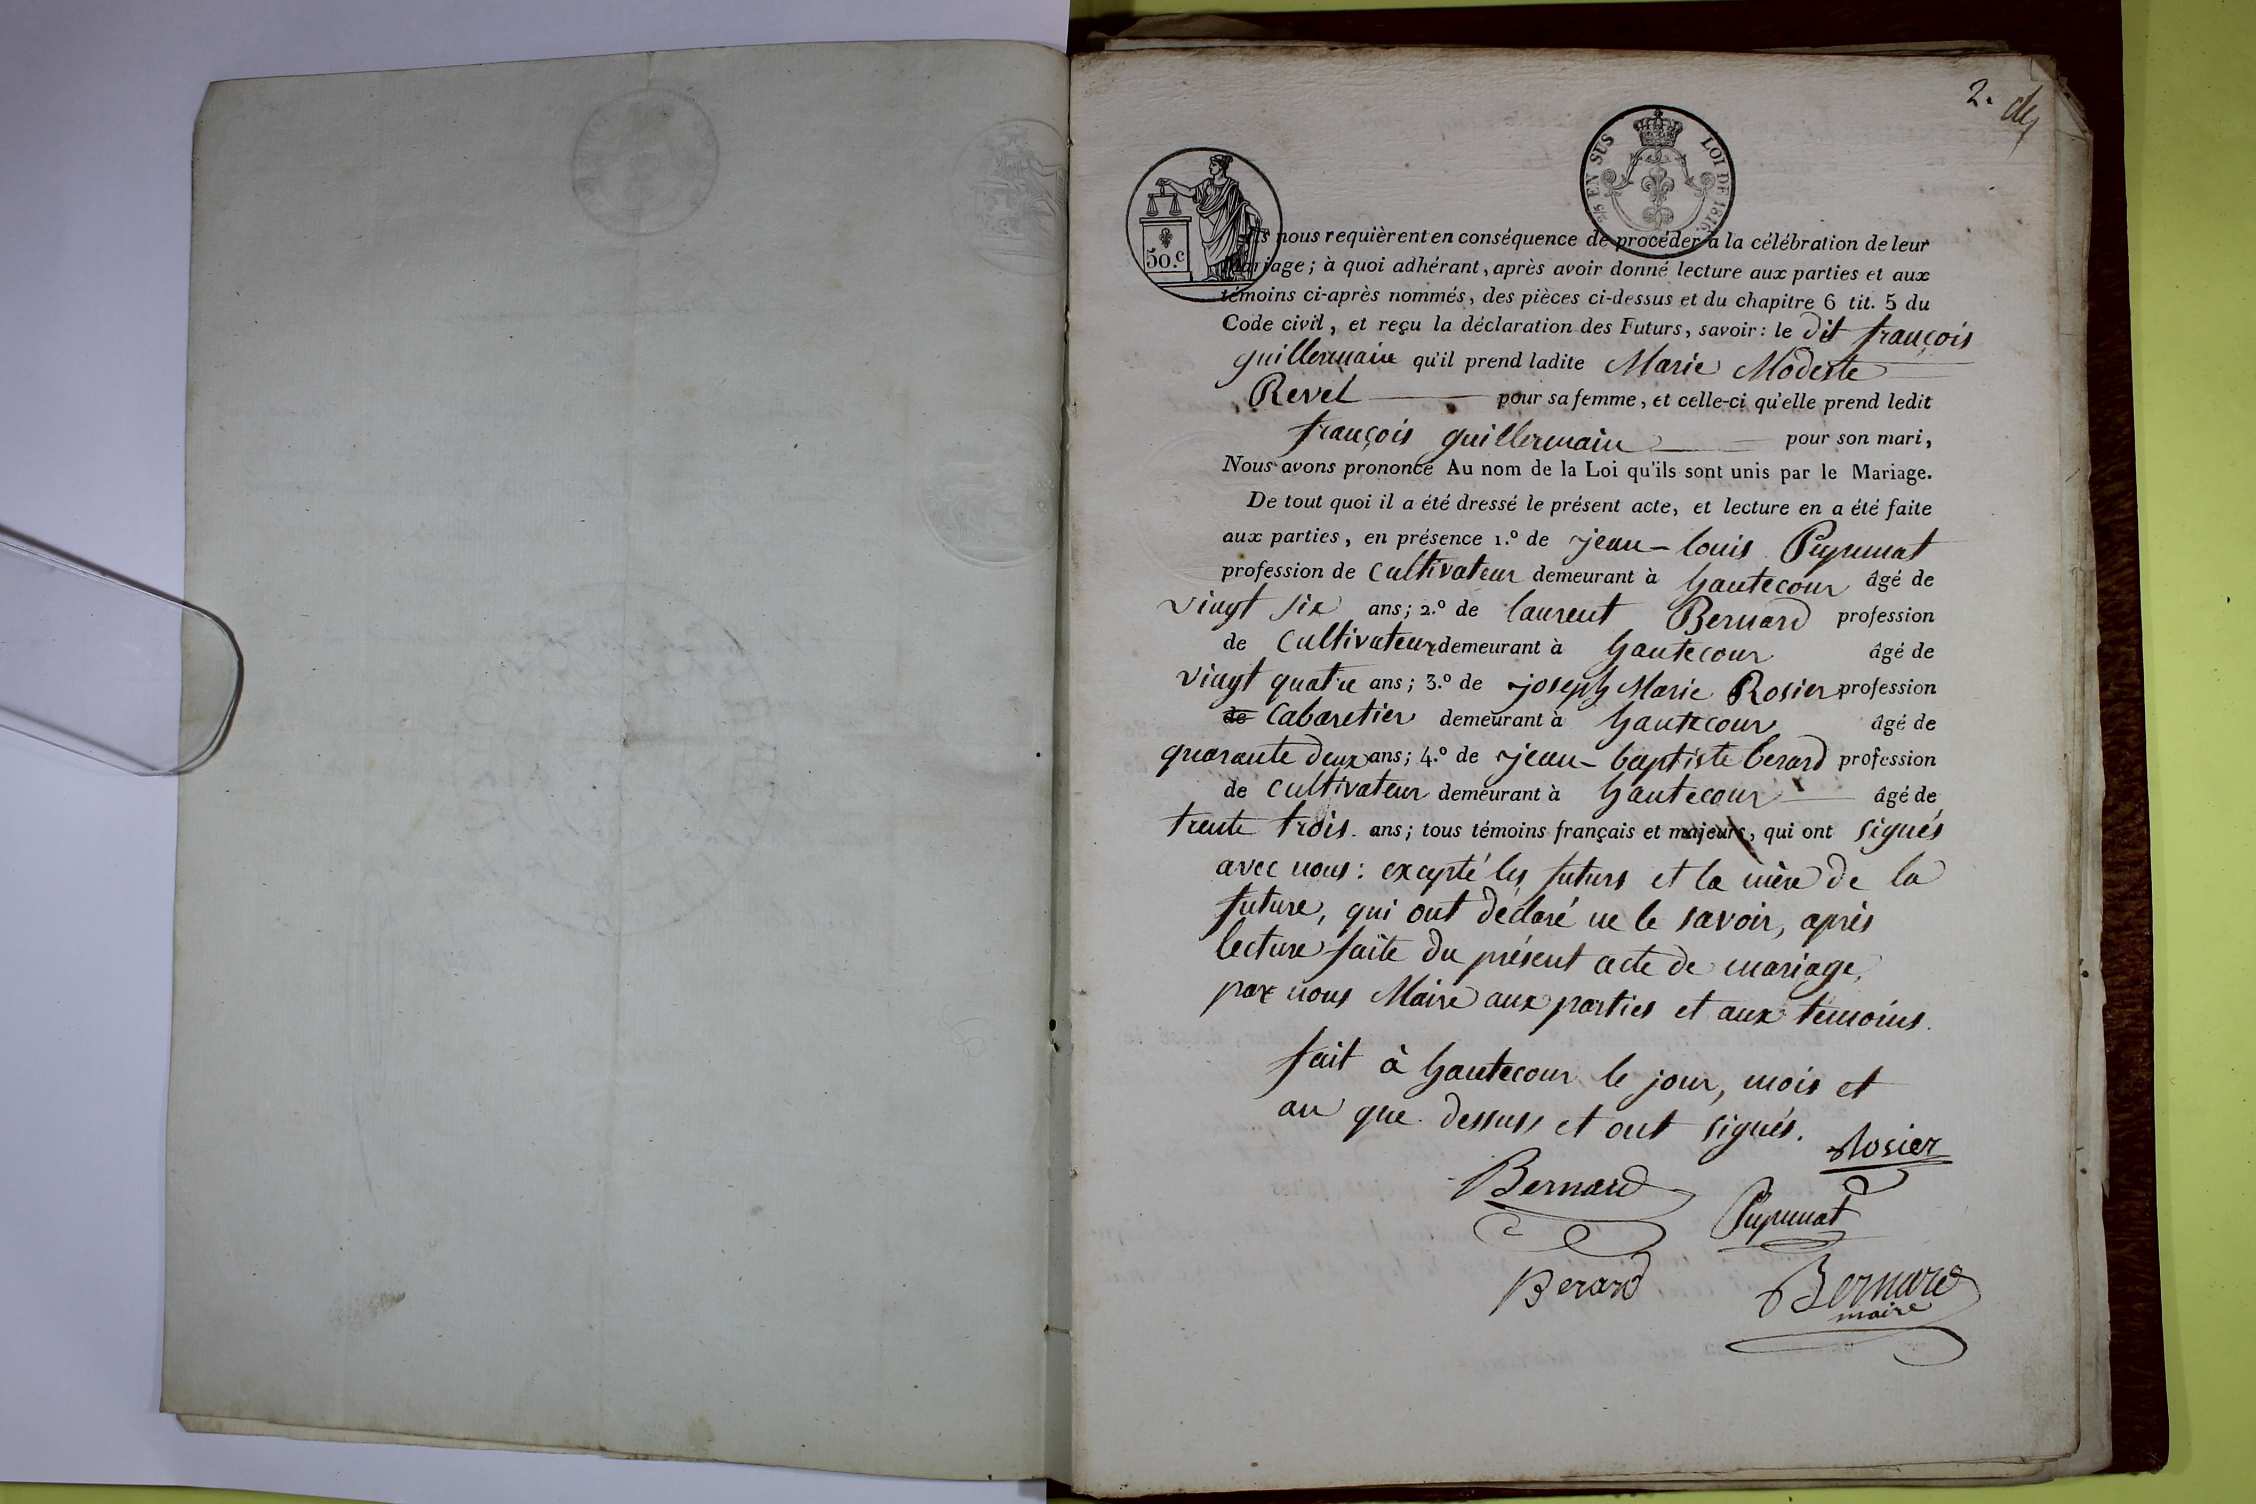 2.
2/5 EN SUS LOI DE 1816.
50.c
Ils nous requièrent en conséquence de procéder à la célébration de leur
Mariage; à quoi adhérant, après avoir donné lecture aux parties et aux
témoins ci-après nommés, des pièces ci-dessus et du chapitre 6 tit. 5 du
Code civil, et reçu la déclaration des Futurs, savoir: le dit françois
guillermain qu'il prend ladite Marie Modeste
Revel pour sa femme, et celle-ci qu'elle prend ledit
françois guillermain pour son mari,
Nous avons prononcé Au nom de la Loi qu'ils sont unis par le Mariage.
De tout quoi il a été dressé le présent acte, et lecture en a été faite
aux parties, en présence 1.º de jean-louis Pupunat
profession de cultivateur demeurant à hautecour âgé de
vingt six ans; 2.º de laurent Bernard profession
de cultivateur demeurant à hautecour âgé de
vingt quatre ans; 3.º de joseph Marie Rosier profession
de Cabaretier demeurant à hautecour âgé de
quarante deux ans; 4.º de jean-baptiste berard profession
de cultivateur demeurant à hautecour âgé de
trente trois ans; tous témoins français et majeurs, qui ont signés
avec nous: excepté les futurs et la mère de la
future, qui ont declaré ne le savoir, après
lecture faite du présent acte de mariage,
par nous Maire aux parties et aux témoins.
fait à hautecour le jour, mois et
an que dessus et ont signés.
Rosier
Bernard
Pupunat
Berard
Bernard
maire